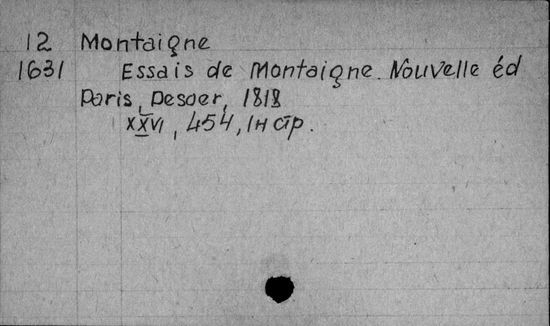 12 Montaigne
1631 Essais de Montaigne. Nouvelle éd
Paris, Desoer, 1818
XXVI, 454, IH стр.